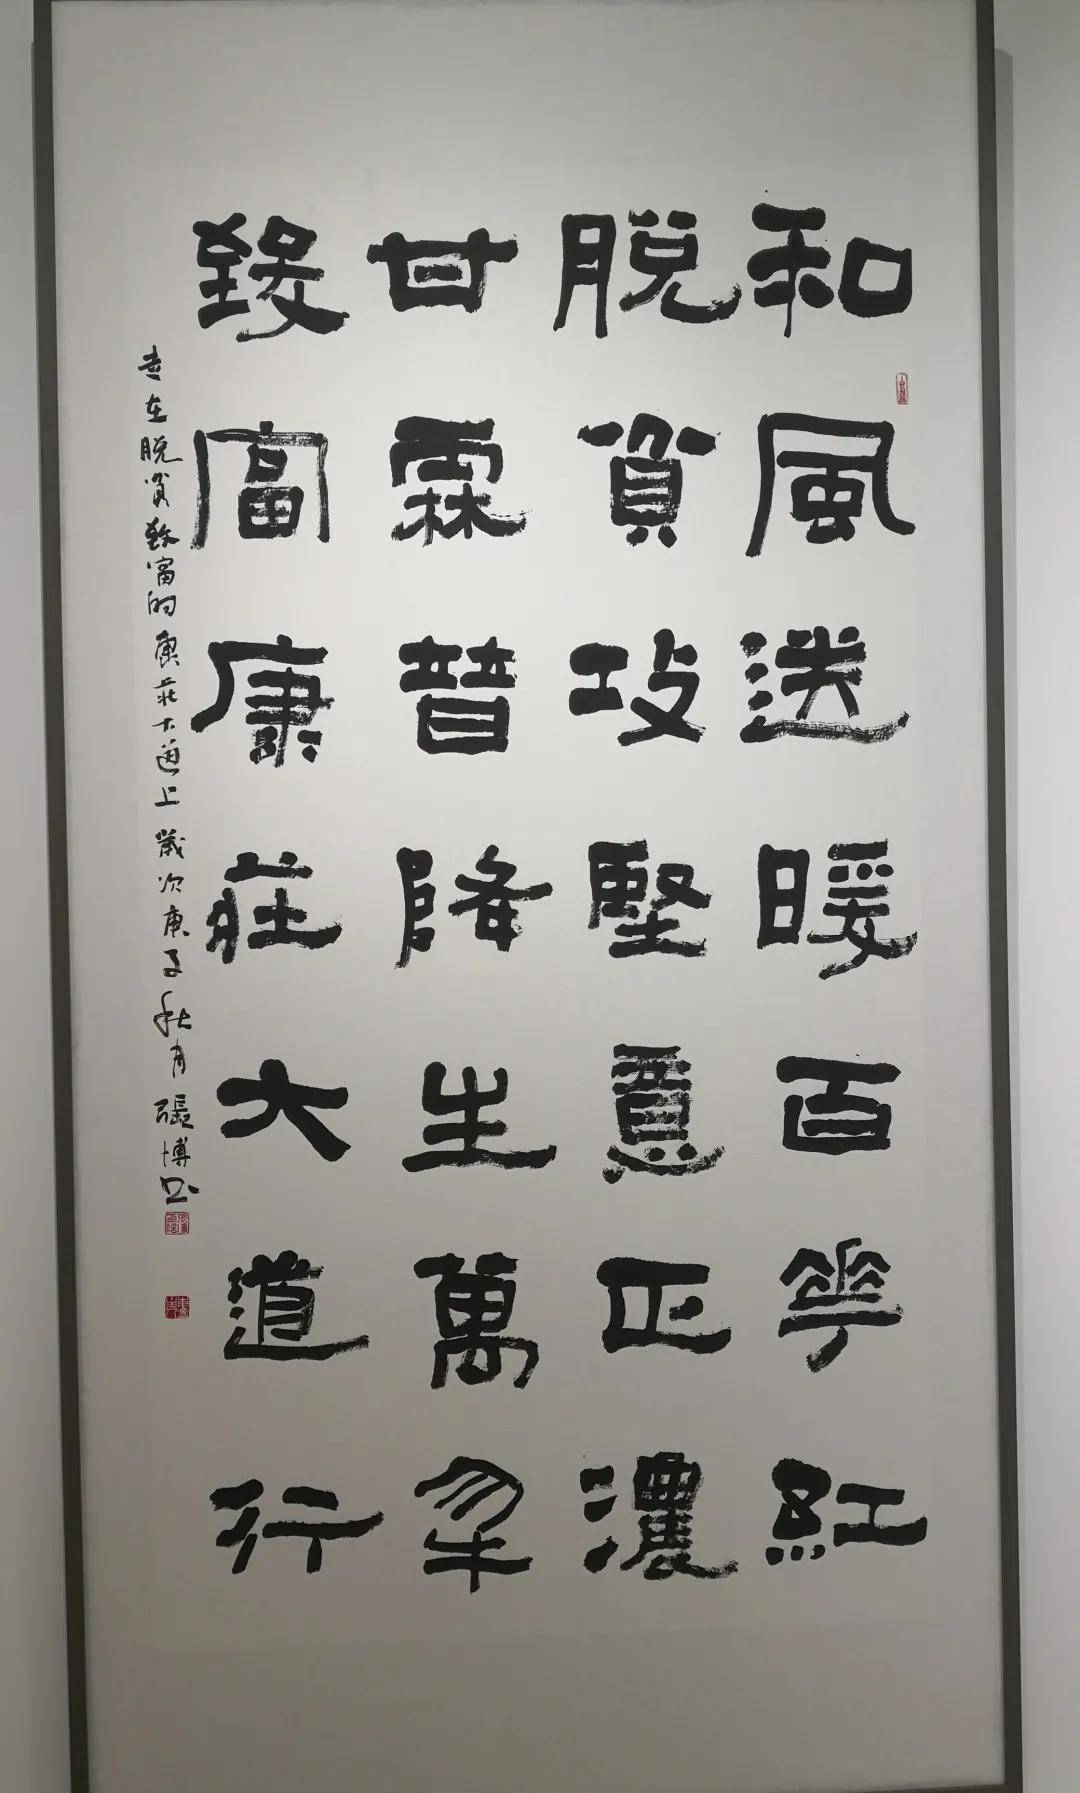 和風送暖百花紅
脫貧攻堅意正濃
甘霖普降生萬物
致富康莊大道行
走在脱貧致富的康莊大道上 歲次庚子秋月 張博书